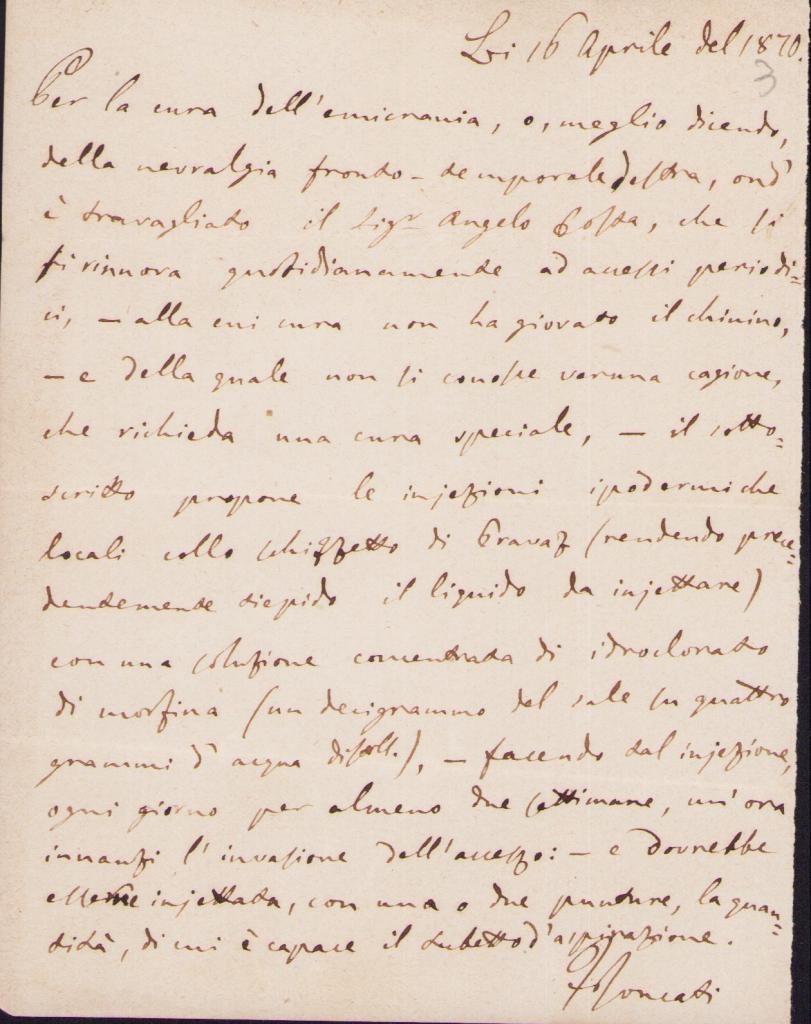 Li 16 Aprile del 1870.
3
Per la cura dell'emicrania, o, meglio dicendo,
della nevralgia fronto-temporale destra, ond'
è travagliato il Sigr Angelo Costa, che si
si rinnova quotidianamente ad accessi periodi=
ci, – alla cui cura non ha giovato il chinino,
– e della quale non si conosce veruna cagione,
che richieda una cura speciale, – il sotto=
scritto propone le injezioni ipodermiche
locali collo schizzetto di Pravaz (rendendo prece=
dentemente tiepido il liquido da injettare)
con una soluzione concentrata di idroclorato
di morfina (un decigrammo del sale su quattro
grammi d'acqua distill.), – facendo tal injezione,
ogni giorno per almeno due settimane, un'ora
innanzi l'invasione dell'accesso: – e dovrebbe
esserne injettata, con una o due punture, la quan=
tità, di cui è capace il tubetto d'aspirazione.
Roncati